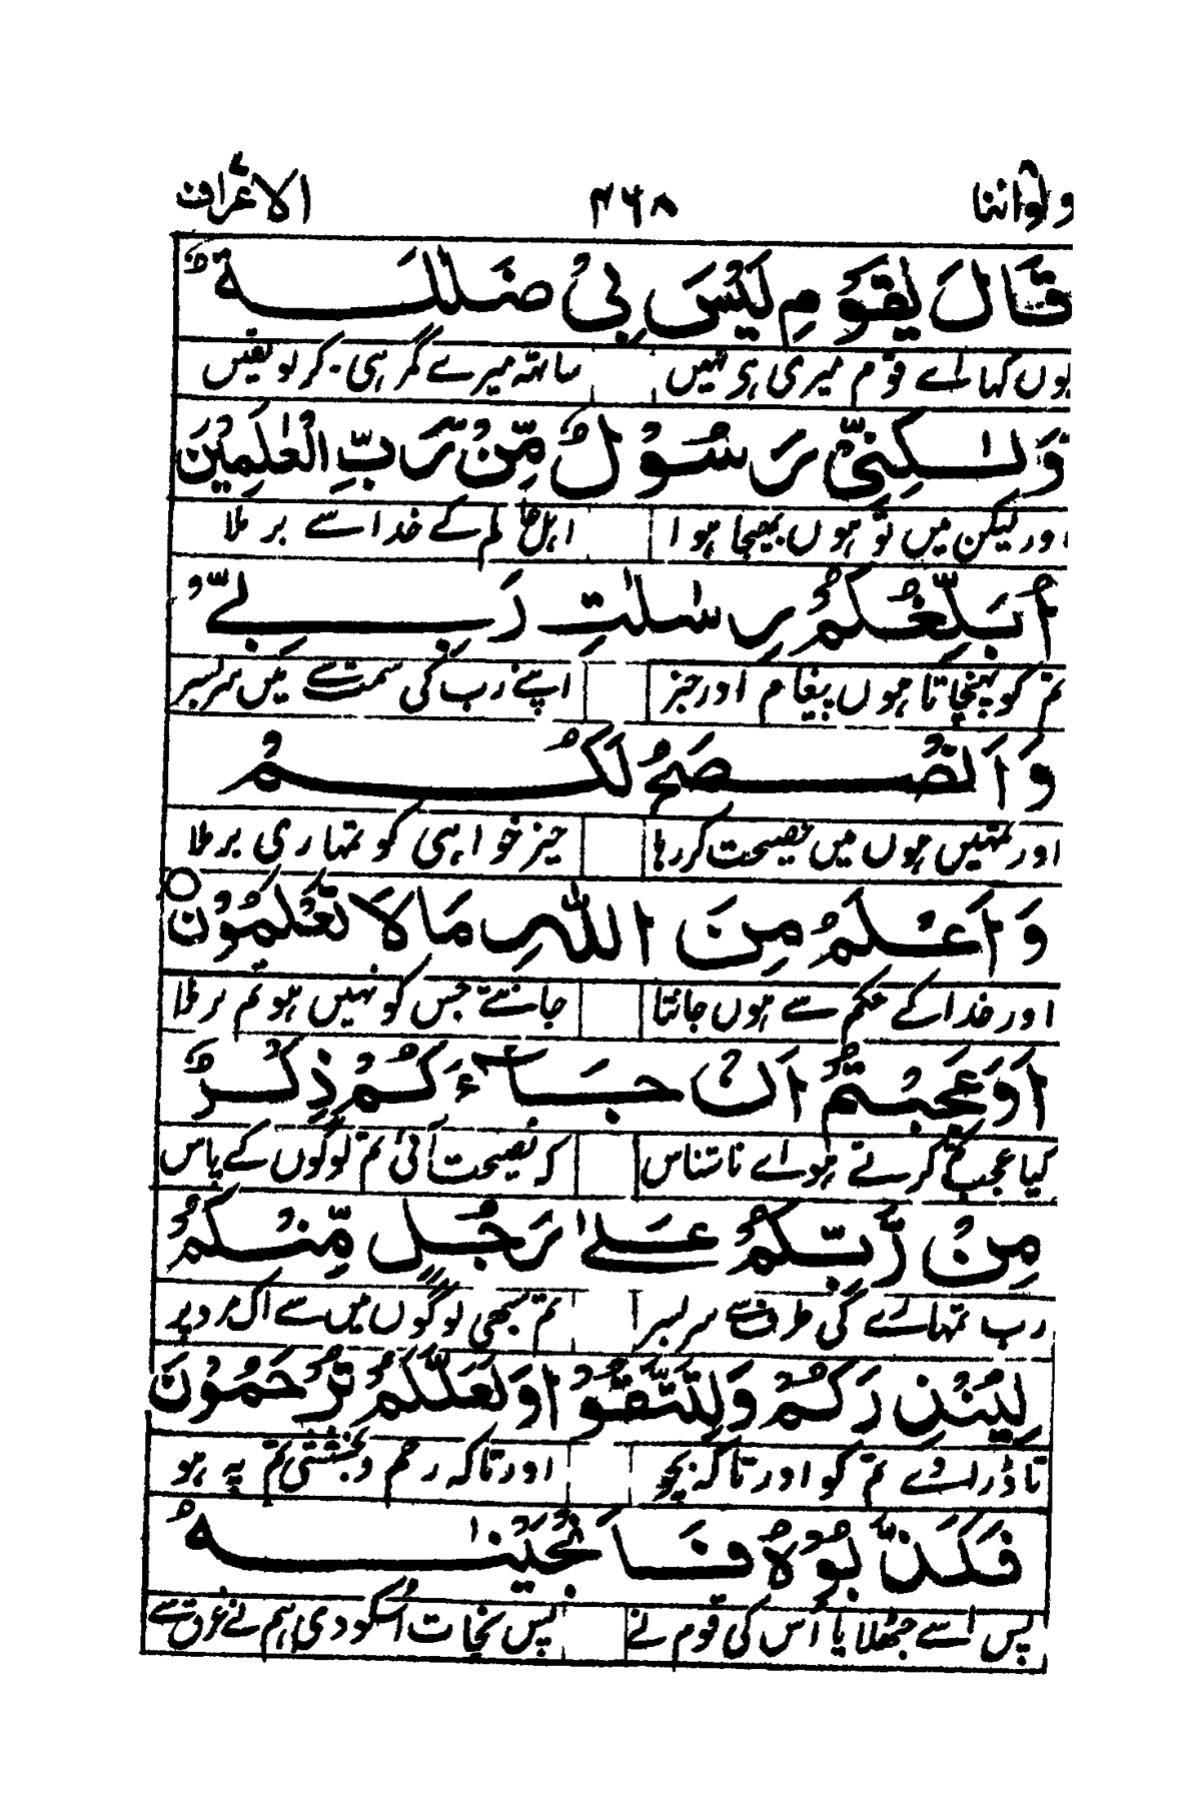 ولواننا ۴۶۸ الاعراف
قَالَ یٰقَوْمِ لَیْسَ بِیْ ضَلٰلَةٌ
یوں کہا اے قوم میری ہی نہیں ساتھ میرے گمرہی . کر لو یقیں
وَّلٰـكِنِّیْ رَسُوْلٌ مِّنْ رَّبِّ الْعٰلَمِیْنَ
اور لیکن میں تو ہوں بھیجا ہوا اہل عالم کے خدا سے برملا
اُبَلِّغُكُمْ رِسٰلٰتِ رَبِّیْ
تم کو پہنچاتا ہوں پیغام اور خبر اپنے رب کی سمت سے میں سربسر
وَاَنْصَحُ لَكُمْ
اور تمہیں ہوں میں نصیحت کر رہا خیز خواہی کو تمہاری برملا
وَاَعْلَمُ مِنَ اللّٰهِ مَا لَا تَعْلَمُوْنَ
اور خدا کے حکم سے ہوں جانتا جانتے جس کو نہیں ہو تم برملا
اَوَعَجِبْتُمْ اَنْ جَآءَكُمْ ذِكْرٌ
کیا عجب کرتے ہو اے ناشناس کہ نصیحت آئی تم لوگوں کے پاس
مِنْ رَّبِّكُمْ عَلٰی رَجُلٍ مِّنْكُمْ
رب تمہارے کی طرف سے سربسر تم سبھی لوگوں میں سے اک مرد پر
لِیُنْذِرَكُمْ وَلِتَتَّقُوْا وَلَعَلَّكُمْ تُرْحَمُوْنَ
تا ڈراوے تم کو اور تاکہ بچو اور تاکہ رحم و بخشش تم پہ ہو
فَكَذَّبُوْهُ فَاَنْجَیْنٰهُ
پس اسے جھٹلایا اُس کی قوم نے پس نجات اُسکو دی ہم نے غرق سے